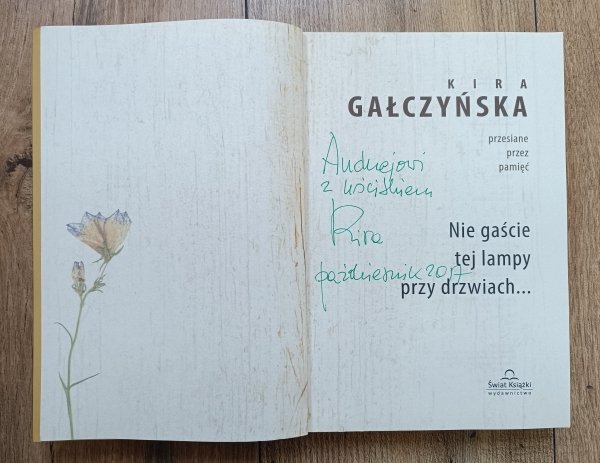 KIRA
GAŁCZYŃSKA
przesiane
przez
pamięć
Andrzejowi
z uściskiem
Kira
październik 2017
Nie gaście
tej lampy
przy drzwiach...
Świat Książki
wydawnictwo